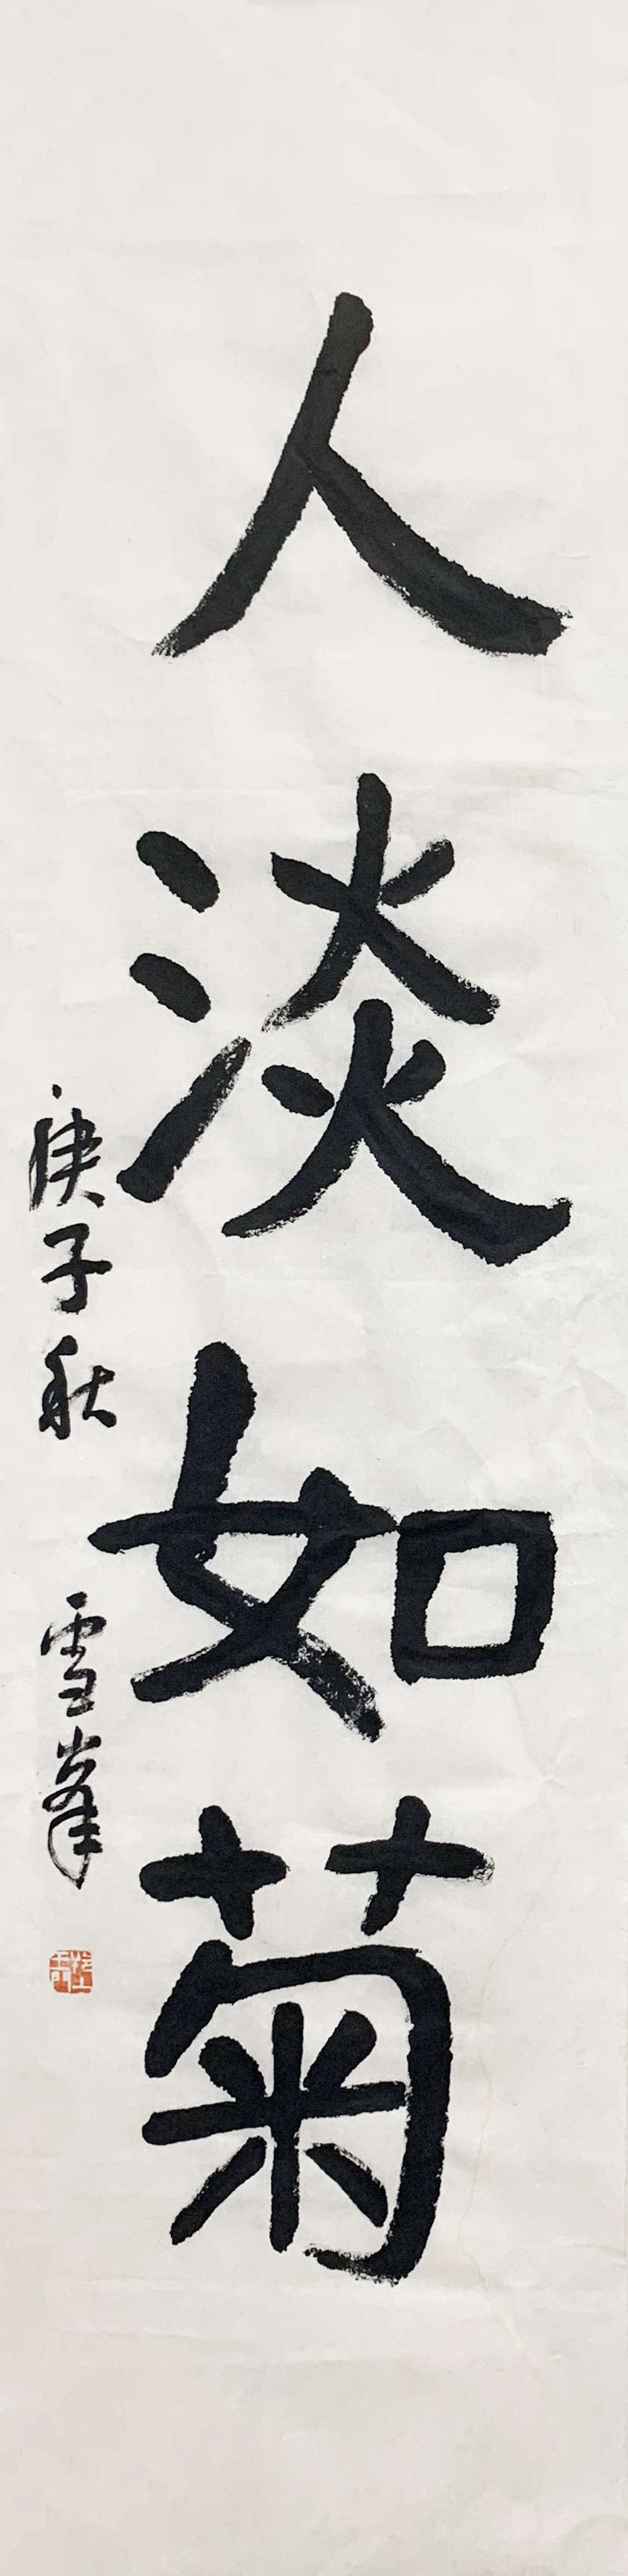 人淡如菊
庚子秋 雪峯